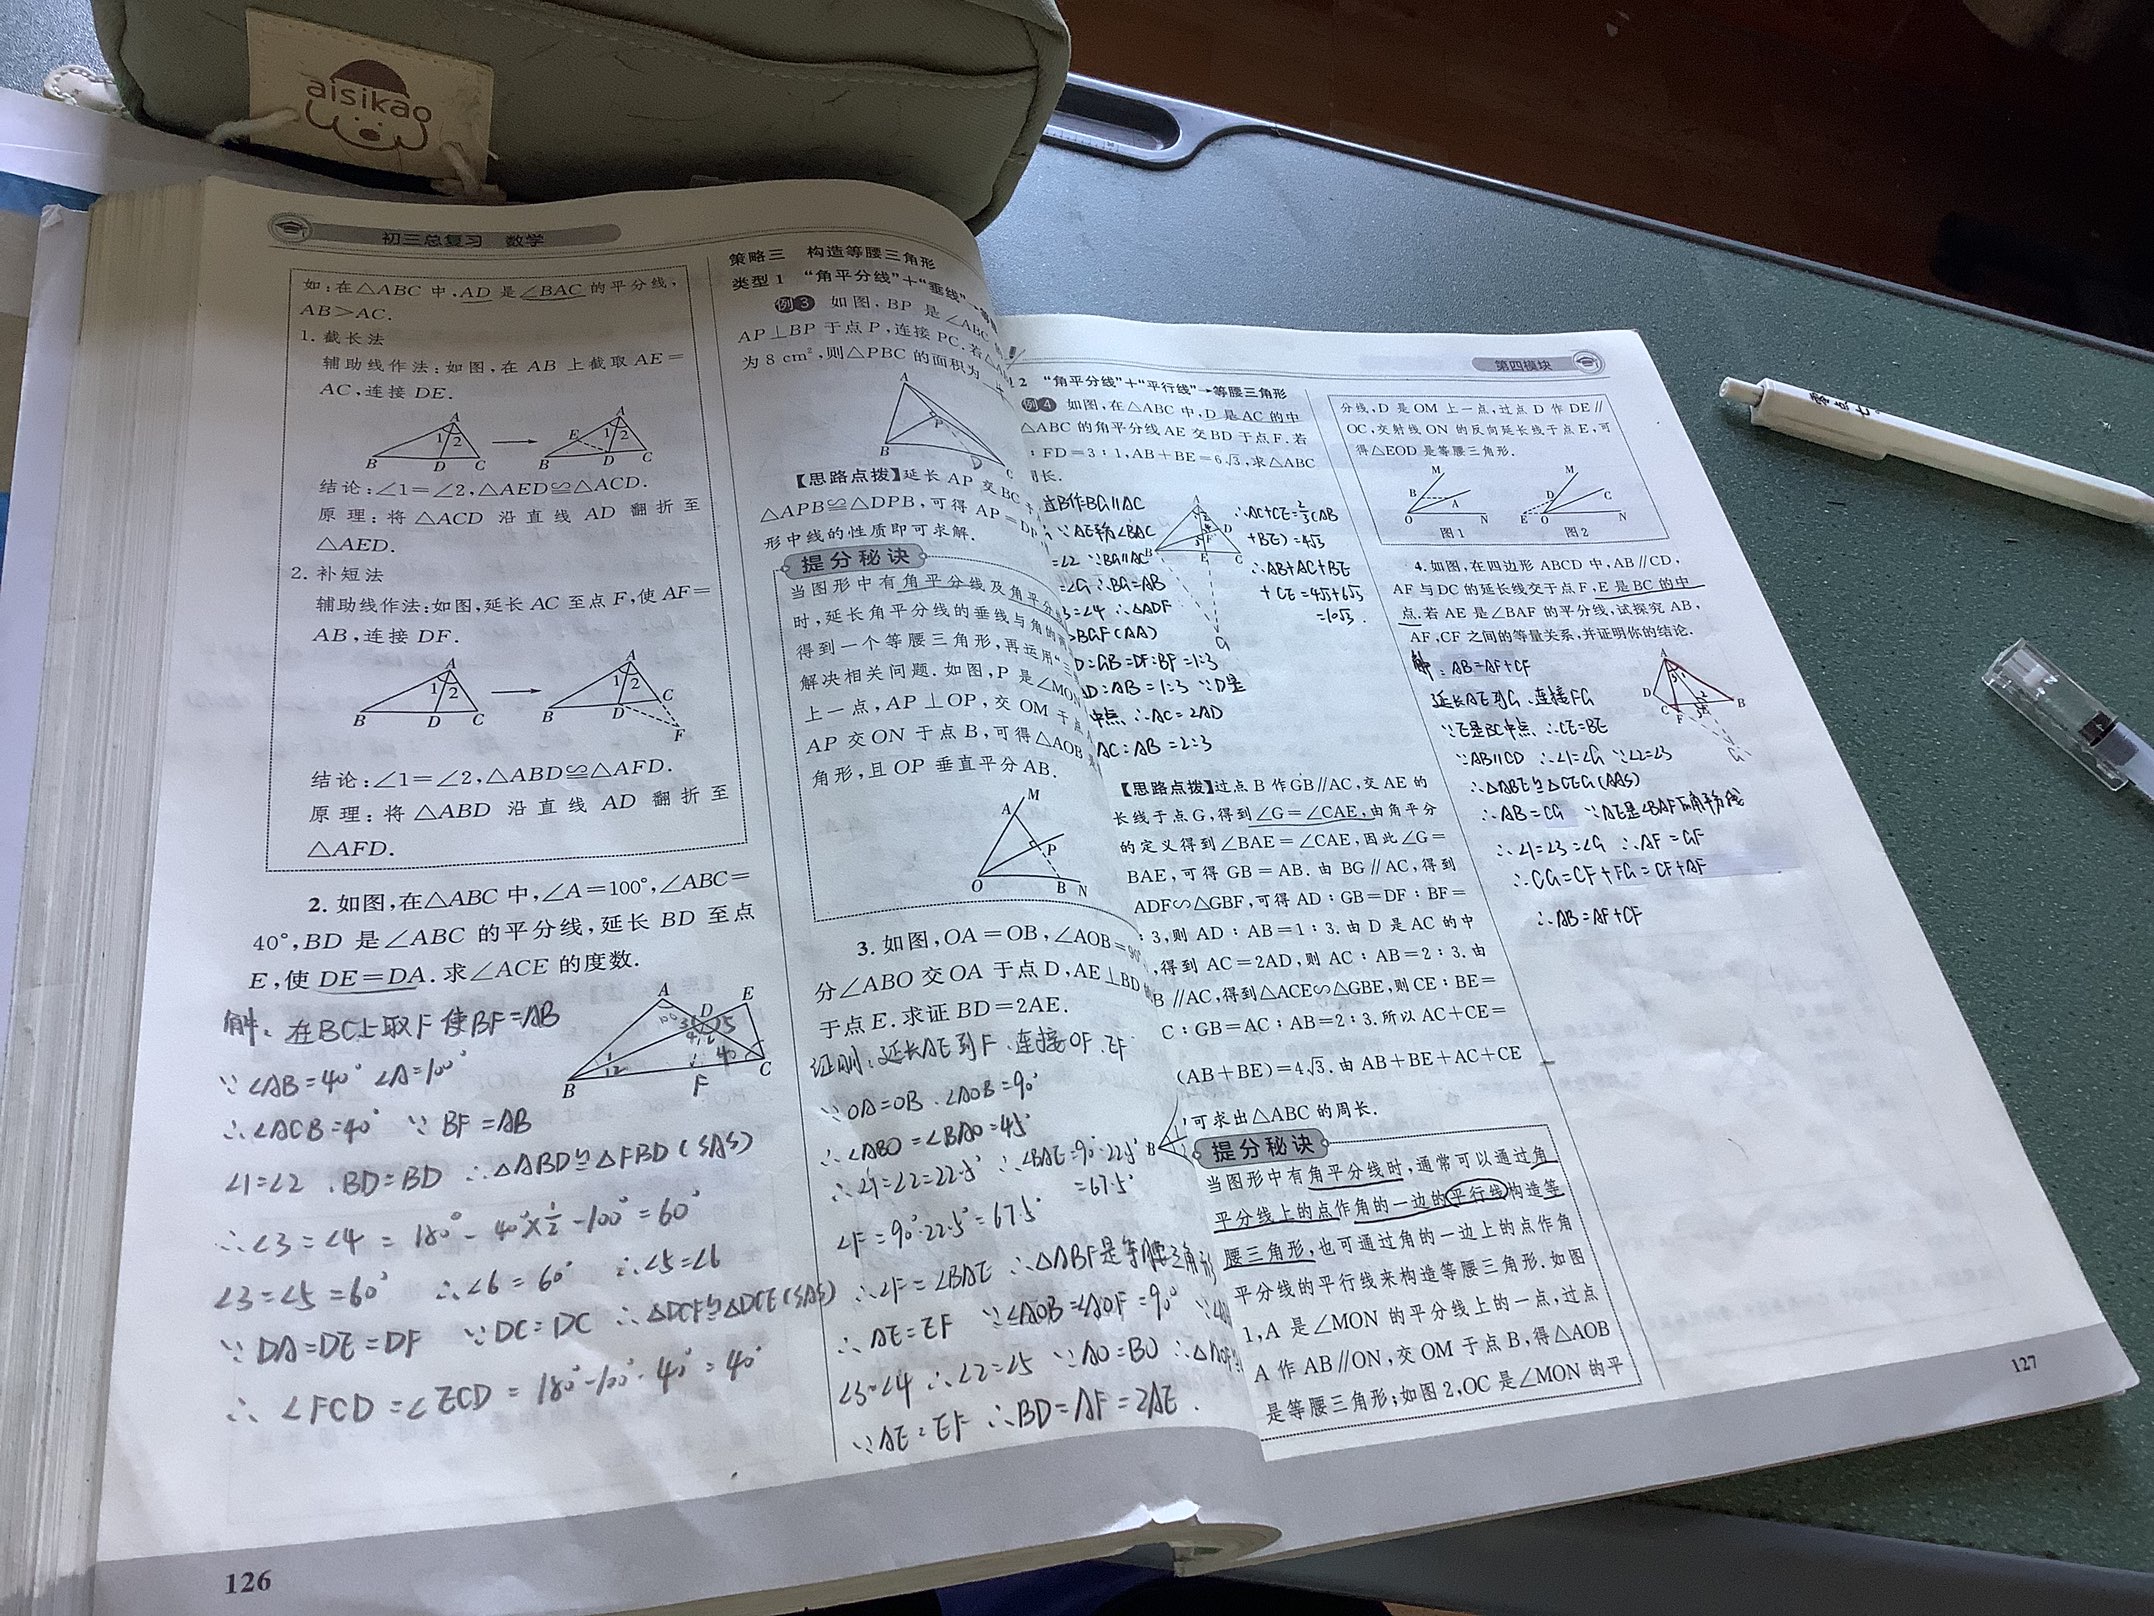 aisikao
初三总复习 数学
如:在△ABC 中,AD 是∠BAC 的平分线,
AB>AC.
1. 截长法
辅助线作法:如图,在 AB 上截取 AE=
AC,连接 DE.
A
1 2
B D C
A
E 1 2
B D C
结论:∠1=∠2,△AED≌△ACD.
原理:将△ACD 沿直线 AD 翻折至
△AED.
2. 补短法
辅助线作法:如图,延长 AC 至点 F,使 AF=
AB,连接 DF.
A
1 2
B D C
A
1 2
C
B D
F
结论:∠1=∠2,△ABD≌△AFD.
原理:将△ABD 沿直线 AD 翻折至
△AFD.
2. 如图,在△ABC 中,∠A=100°,∠ABC=
40°,BD 是∠ABC 的平分线,延长 BD 至点
E,使 DE=DA.求∠ACE 的度数.
A D E
B F C
解:在BC上取F使BF=AB
∵∠AB=40° ∠A=100°
∴∠ACB=40° ∵BF=AB
∠1=∠2 BD=BD ∴△ABD≌△FBD(SAS)
∴∠3=∠4=180°-40°×1/2-100°=60°
∠3=∠5=60° ∴∠6=60° ∴∠5=∠6
∵DA=DE=DF ∵DC=DC ∴△DCF≌△DCE(SAS)
∴∠FCD=∠ECD=180°-100°-40°=40°
126
策略三 构造等腰三角形
类型1 “角平分线”+“垂线”
例3 如图,BP 是∠ABC
AP⊥BP 于点 P,连接 PC.若△
为 8 cm²,则△PBC 的面积为
A
P
B
D
C
【思路点拨】延长 AP 交 BC
△APB≌△DPB,可得 AP=D
形中线的性质即可求解.
提分秘诀
当图形中有角平分线及角平分
时,延长角平分线的垂线与角的
得到一个等腰三角形,再运用“三
解决相关问题.如图,P 是∠MON
上一点,AP⊥OP,交 OM 于点
AP 交 ON 于点 B,可得△AOB
角形,且 OP 垂直平分 AB.
M
A
P
O B N
3. 如图,OA=OB,∠AOB=90°
分∠ABO 交 OA 于点 D,AE⊥BD
于点 E.求证 BD=2AE.
证明:延长AE到F、连接OF、EF
∵OA=OB、∠AOB=90°
∴∠ABO=∠BAO=45°
∴∠1=∠2=22.5° ∴∠BAE=90°-22.5°
=67.5°
∠F=90°-22.5°=67.5°
∴∠F=∠BAE ∴△ABF是等腰三角形
∴AE=EF ∵∠AOB=∠AOF=90°
∠3=∠4 ∴∠2=∠5 ∵AO=BO
∵AE=EF ∴BD=AF=2AE.
第四模块
2 “角平分线”+“平行线”→等腰三角形
例4 如图,在△ABC 中,D 是 AC 的中
△ABC 的角平分线 AE 交 BD 于点 F.若
:FD=3:1,AB+BE=6√3,求△ABC
周长.
过B作BG∥AC
∵AE平分∠BAC
=∠2 ∵BG∥AC
=∠G ∴BG=AB
3=∠4 ∴△ADF
BGF(AA)
D:GB=DF:BF=1:3
AD:AB=1:3 ∵D是
中点 ∴AC=2AD
AC:AB=2:3
A
D
B E C
G
∴AC+CE=2/3(AB
+BE)=4√3
∴AB+AC+BE
+CE=4√3+6√3
=10√3.
【思路点拨】过点 B 作 GB∥AC,交 AE 的
长线于点 G,得到∠G=∠CAE,由角平分
的定义得到∠BAE=∠CAE,因此∠G=
BAE,可得 GB=AB.由 BG∥AC,得到
ADF∽△GBF,可得 AD:GB=DF:BF=
:3,则 AD:AB=1:3.由 D 是 AC 的中
,得到 AC=2AD,则 AC:AB=2:3.由
B∥AC,得到△ACE∽△GBE,则 CE:BE=
C:GB=AC:AB=2:3.所以 AC+CE=
(AB+BE)=4√3.由 AB+BE+AC+CE
可求出△ABC 的周长.
B
提分秘诀
当图形中有角平分线时,通常可以通过角
平分线上的点作角的一边的平行线构造等
腰三角形,也可通过角的一边上的点作角
平分线的平行线来构造等腰三角形.如图
1,A 是∠MON 的平分线上的一点,过点
A 作 AB∥ON,交 OM 于点 B,得△AOB
是等腰三角形;如图 2,OC 是∠MON 的平
分线,D 是 OM 上一点,过点 D 作 DE∥
OC,交射线 ON 的反向延长线于点 E,可
得△EOD 是等腰三角形.
M
B A
O N
图1
M
D C
E O N
图2
4. 如图,在四边形 ABCD 中,AB∥CD,
AF 与 DC 的延长线交于点 F,E 是 BC 的中
点.若 AE 是∠BAF 的平分线,试探究 AB,
AF,CF 之间的等量关系,并证明你的结论.
解:AB=AF+CF
延长AE到G、连接FG
∵E是BC中点 ∴CE=BE
∵AB∥CD ∴∠1=∠G ∵∠2=∠3
∴△ABE≌△CEG(AAS)
∴AB=CG ∵AE是∠BAF的角平分线
∴∠1=∠3=∠G ∴AF=GF
∴CG=CF+FG=CF+AF
∴AB=AF+CF
A
D
C F E B
G
127